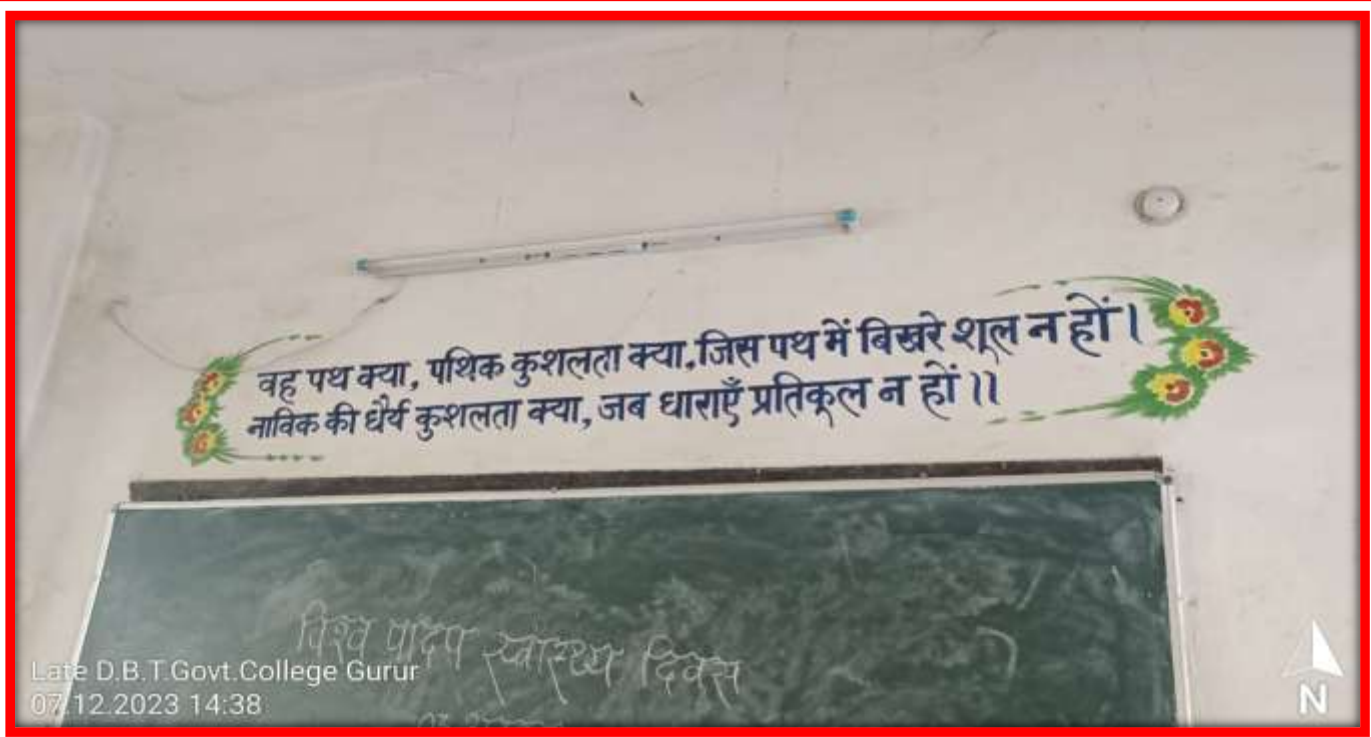 वह पथ क्या, पथिक कुशलता क्या, जिस पथ में बिखरे शूल न हों।
नाविक की धैर्य कुशलता क्या, जब धाराएँ प्रतिकूल न हों॥
विश्व पादप स्वास्थ्य दिवस
Late D.B.T.Govt.College Gurur
07.12.2023 14:38
N